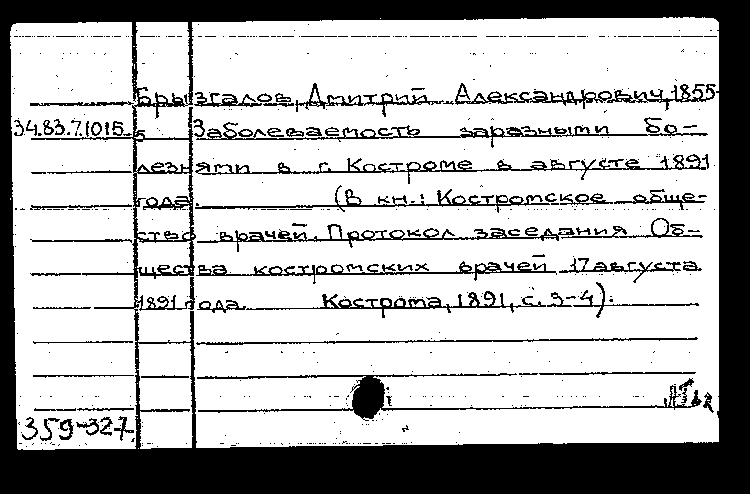 Брызгалов, Дмитрий Александрович, 1855-
34.83.7.1015
5 Заболеваемость заразными бо-
лезнями в г. Костроме в августе 1891
года. (В кн.: Костромское обще-
ство врачей. Протокол заседания Об-
щества костромских врачей 17 августа
1891 года. Кострома, 1891, с. 3-4).
359-327